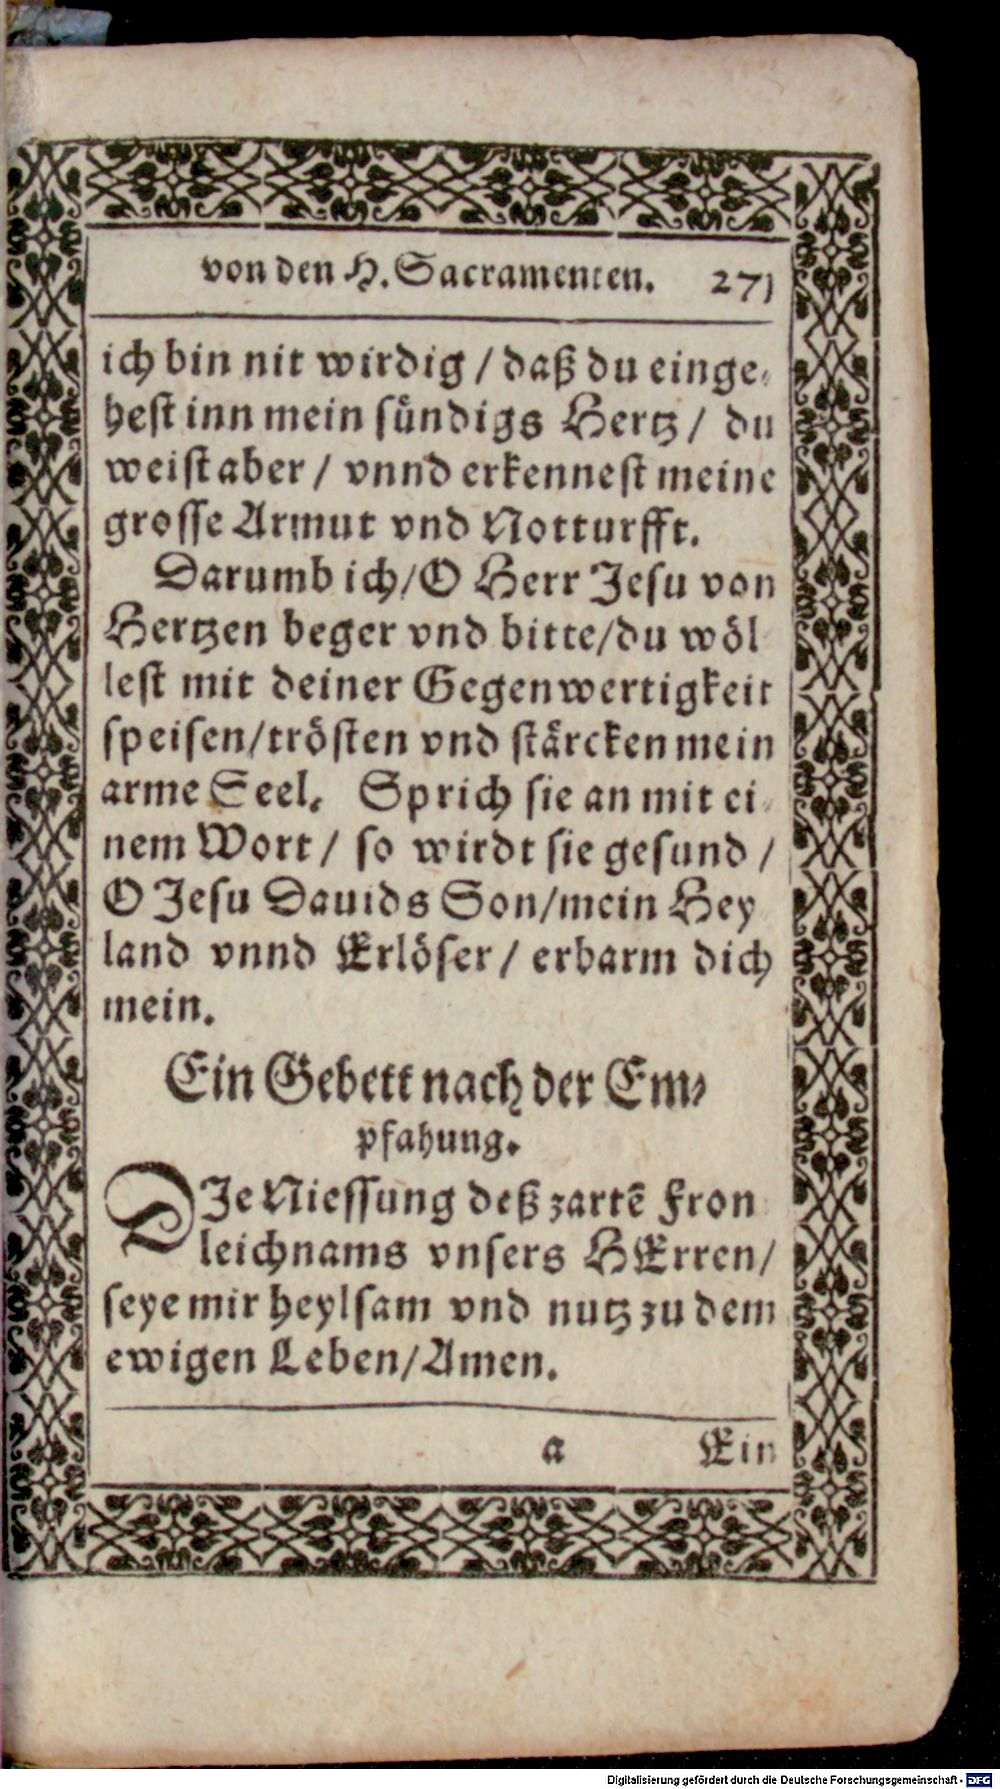 von den H. Sacramenten. 271
ich bin nit wirdig / daß du einge⸗
hest inn mein sündigs Hertz / du
weist aber / vnnd erkennest meine
grosse Armut vnd Notturfft.
Darumb ich / O Herr Jesu von
Hertzen beger vnd bitte / du wöl
lest mit deiner Gegenwertigkeit
speisen / trösten vnd stärcken mein
arme Seel. Sprich sie an mit ei⸗
nem Wort / so wirdt sie gesund /
O Jesu Dauids Son / mein Hey
land vnnd Erlöser / erbarm dich
mein.
Ein Gebett nach der Em⸗
pfahung.
DJe Niessung deß zartē Fron
leichnams vnsers HErren /
seye mir heylsam vnd nutz zu dem
ewigen Leben / Amen.
a Ein
Digitalisierung gefördert durch die Deutsche Forschungsgemeinschaft - DFG